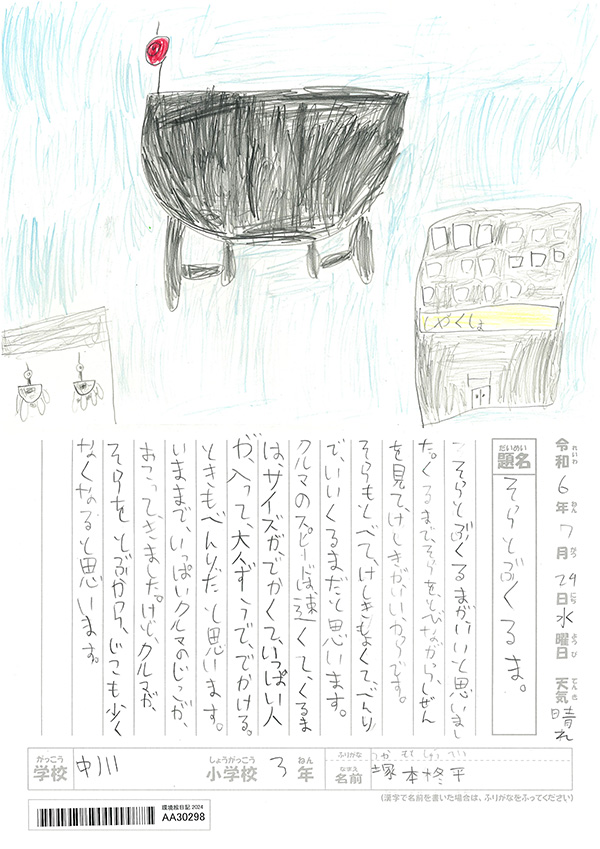 しやくしょ
令和6年7月24日水曜日 天気 晴れ
れいわ ねん がつ にち ようび てんき
だいめい
題名 そらとぶくるま。
そらとぶくるまが、いいと思いまし
た。くるまで、そらを、とびながら、しぜん
を見て、けしきがいいからです。
そらもとべて、けしきもよくて、べんり
で、いいくるまだと思います。
クルマのスピードは、速くて、くるま
は、サイズが、でかくて、いっぱい人
が、入って、大人ずうで、でかける。
ときもべんりだと思います。
いままで、いっぱいクルマのじこが、
おこって、きました。けど、クルマが、
そらを、とぶから、じこも少く
なくなると思います。
がっこう
学校 中川
しょうがっこう ねん
小学校 3年
ふりがな
なまえ
名前 塚本柊平
(漢字で名前を書いた場合は、ふりがなをふってください)
環境絵日記2024
AA30298